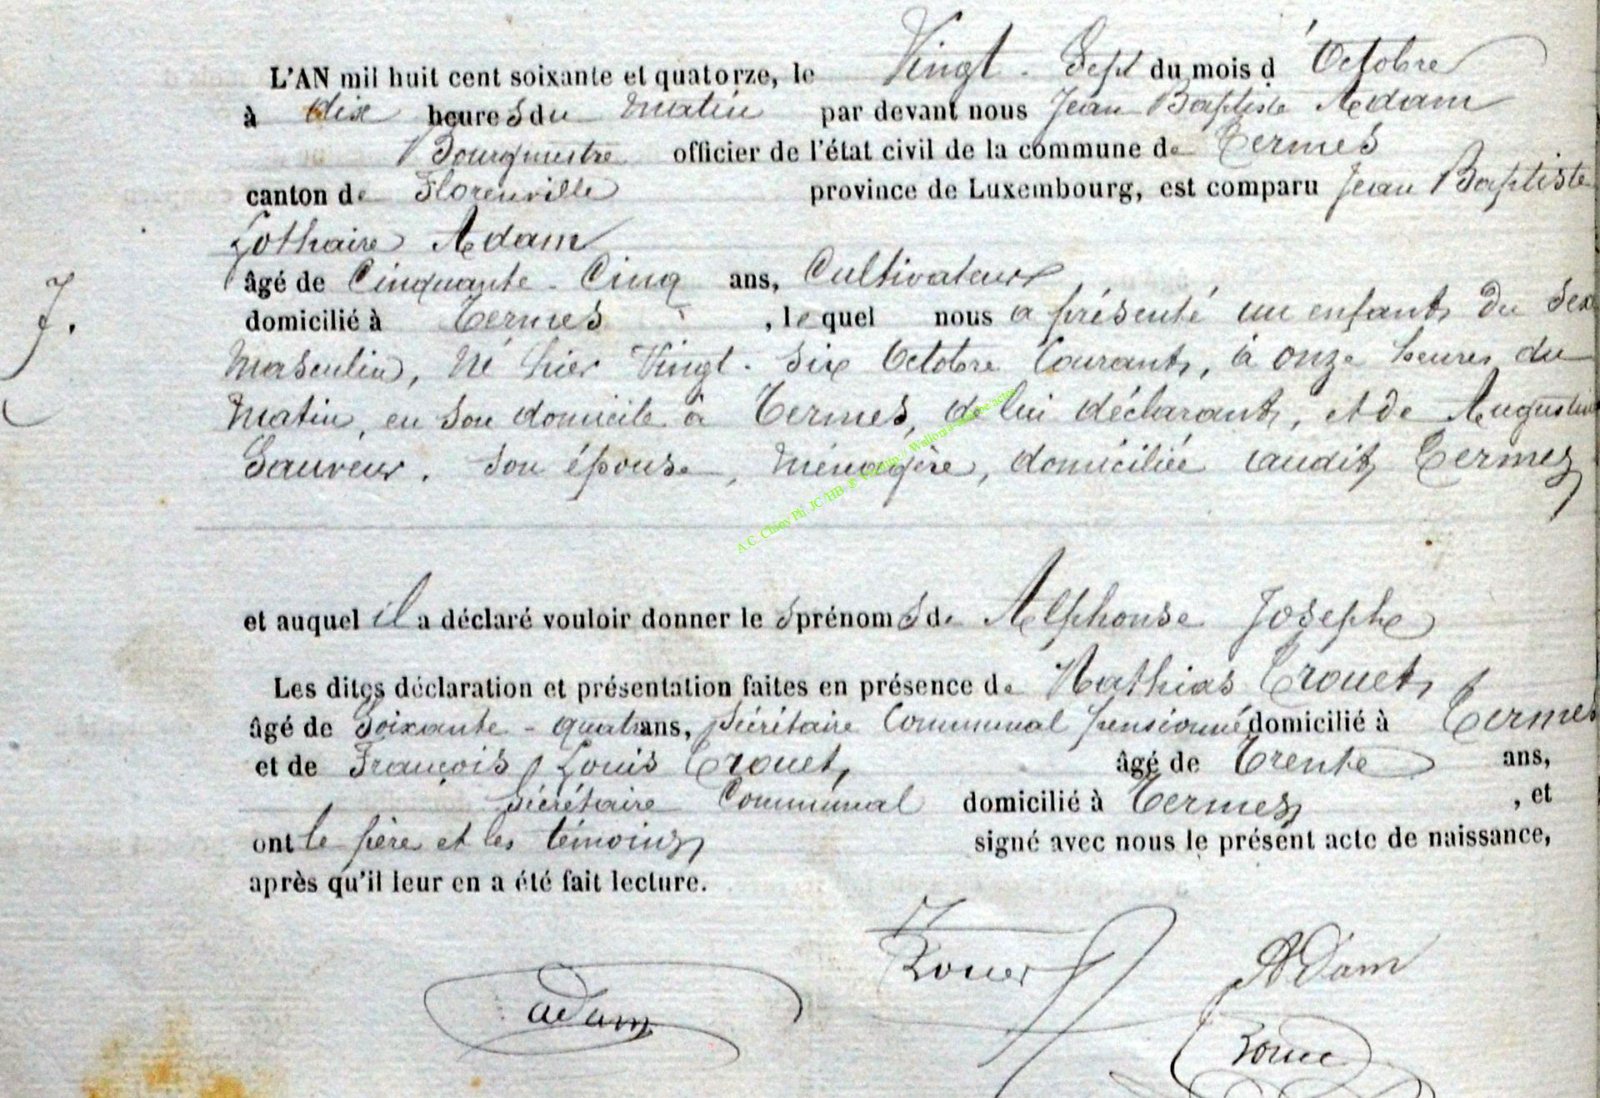 L'AN mil huit cent soixante et quatorze, le Vingt-Sept du mois d'Octobre
à dix heures du matin par devant nous Jean Baptiste Adam
Bourgmestre officier de l'état civil de la commune de Termes
canton de Florenville province de Luxembourg, est comparu Jean Baptiste
Lothaire Adam
âgé de Cinquante-Cinq ans, Cultivateur
domicilié à Termes, lequel nous a présenté un enfant du Sexe
masculin, né hier Vingt-Six Octobre Courant, à onze heures du
matin, en son domicile à Termes, de lui déclarant, et de Augustine
Sauveur. son épouse, ménagère, domiciliée audit Termes
et auquel il a déclaré vouloir donner les prénoms de Alphonse Josephe
Les dites déclaration et présentation faites en présence de Mathias Trouet,
âgé de Soixante-quatre ans, Sécrétaire Communal pensionné domicilié à Termes
et de François Louis Trouet, âgé de Trente ans,
Sécrétaire Communal domicilié à Termes, et
ont le père et les témoins signé avec nous le présent acte de naissance,
après qu'il leur en a été fait lecture.
Adam
adam